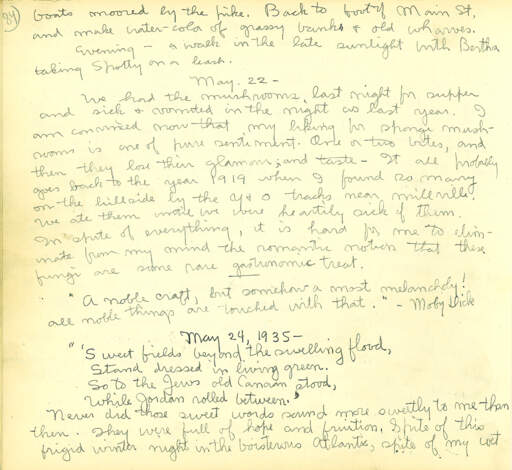 34
boats moored by the pike. Back to foot of Main St,
and make water-color of grassy banks & old wharves.
Evening - a walk in the late sunlight with Bertha
taking Spotty on a leash.
May. 22 -
We had the mushrooms last night for supper
and sick & vomited in the night as last year. I
am convinced now that my liking for sponge mush-
rooms is one of pure sentiment. One or two bites, and
then they lose their glamour, and taste - It all probably
goes back to the year 1919 when I found so many
on the hillside by the Y & O tracks near Millville.
We ate them until we were heartily sick of them.
In spite of everything, it is hard for me to elim-
inate from my mind the romantic notion that these
fungi are some rare gastronomic treat.
"A noble craft, but somehow a most melancholy!
all noble things are touched with that." - Moby Dick
May 24, 1935 -
"'Sweet fields beyond the swelling flood,
Stand dressed in living green.
So to the Jews old Canaan stood,
While Jordan rolled between.'
Never did those sweet words sound more sweetly to me than
then. They were full of hope and fruition. Spite of this
frigid winter night in the boisterous Atlantic, spite of my wet